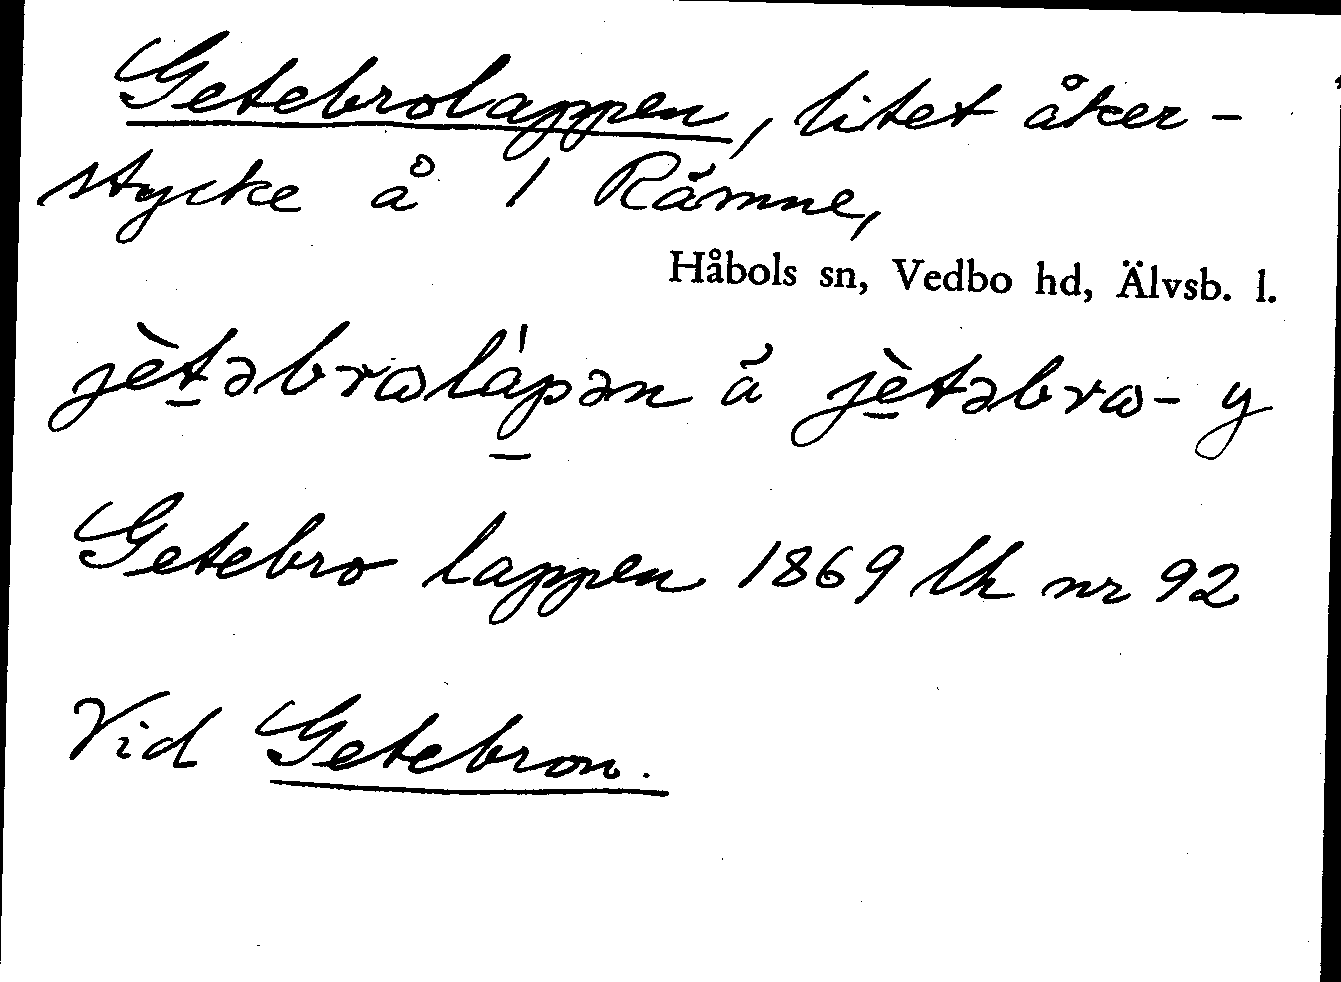 Getebrolappen, litet åker-
stycke å 1 Rämne,
Håbols sn, Vedbo hd, Älvsb. l.
jèt̲əbrωláp̲ən ä jèt̲əbrω- y
Getebro lappen 1869 lh nr 92
Vid Getebron.